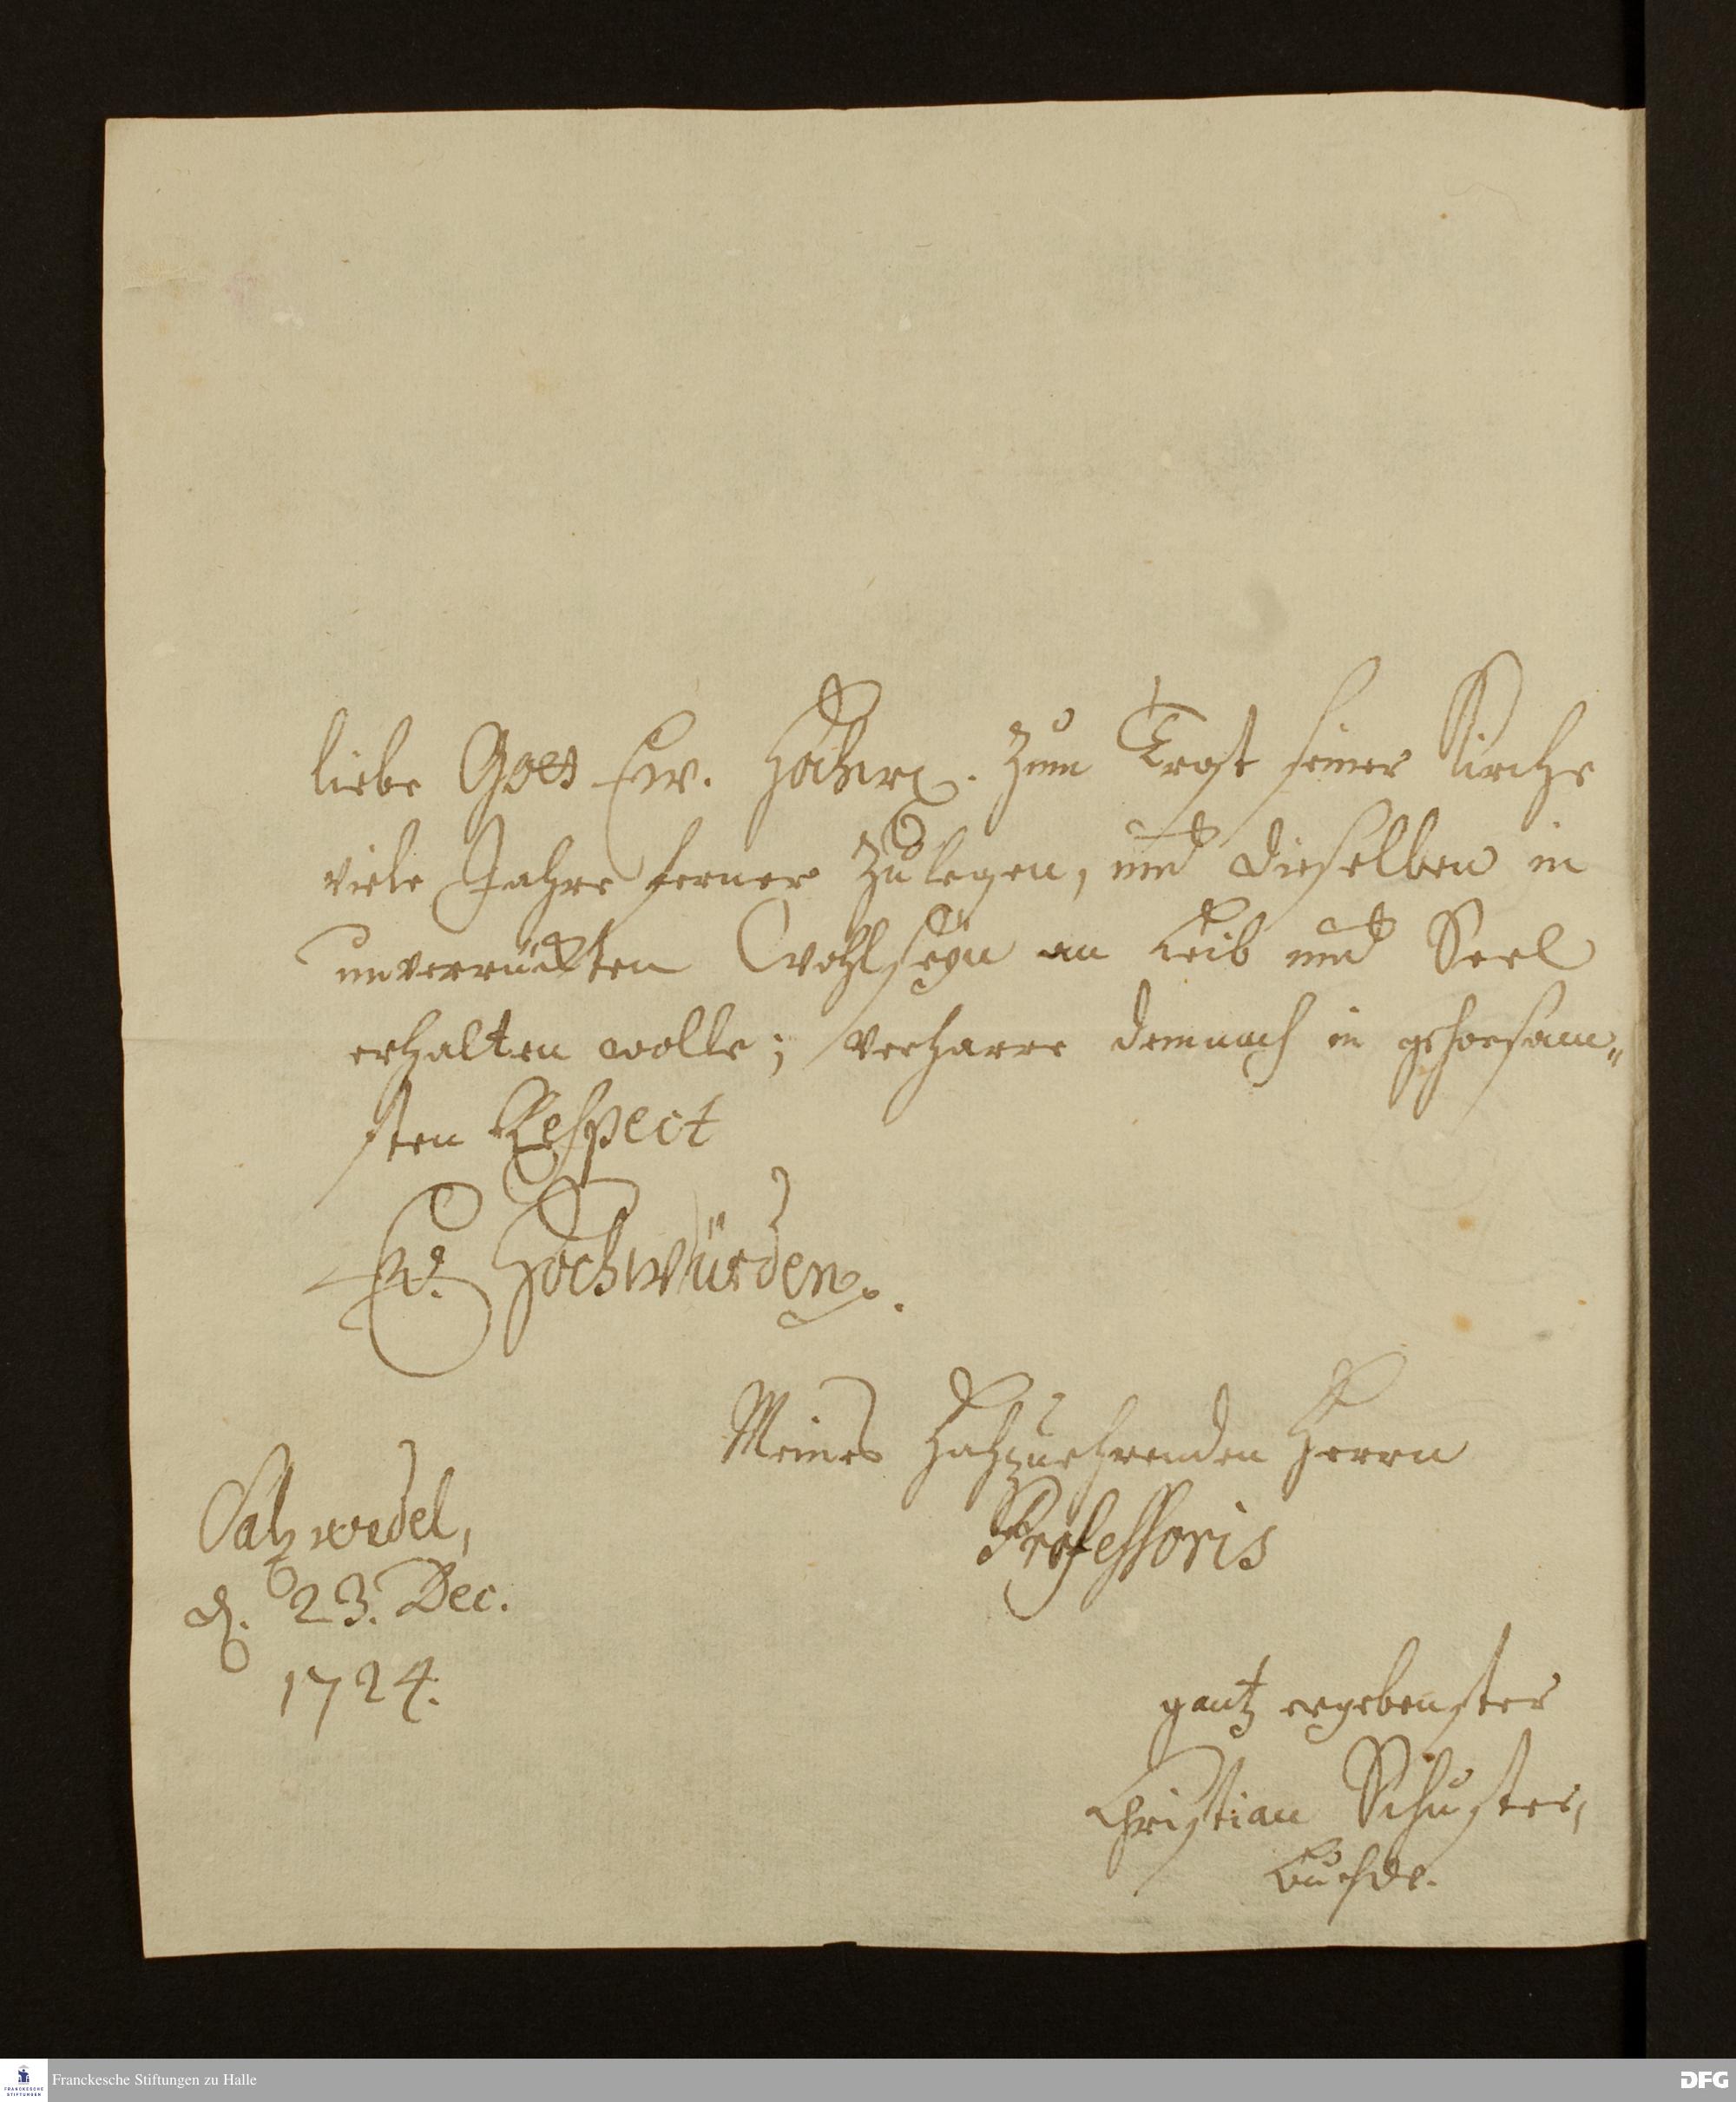 liebe Gott Ew. Hochw. zum Trost seiner Kirche
viele Jahre ferner zulegen, und dieselben in
unverrückten Wohlseyn an Leib und Seel
erhalten wolle; verharre demnach in gehorsam„
sten Respect
Ew. Hochwürden.
Meines Hochzuehrenden Herrn
Professoris
Saltzwedel,
d. 23. Dec.
1724.
gantz ergebenster
Christian Schuster,
Buchdr.
Franckesche Stiftungen zu Halle
DFG
FRANCKESCHE
STIFTUNGEN